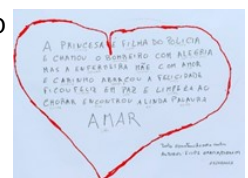 A PRINCESA E FILHA DO POLICIA
E CHAMOU O BOMBEIRO COM ALEGRIA
MAS A ENFERMEIRA MÃE COM AMOR
E CARINHO ABRAÇOU A FELICIDADE
FICOU FELIZ EM PAZ E LIMPEZA AO
CHORAR ENCONTROU A LINDA PALAVRA
AMAR